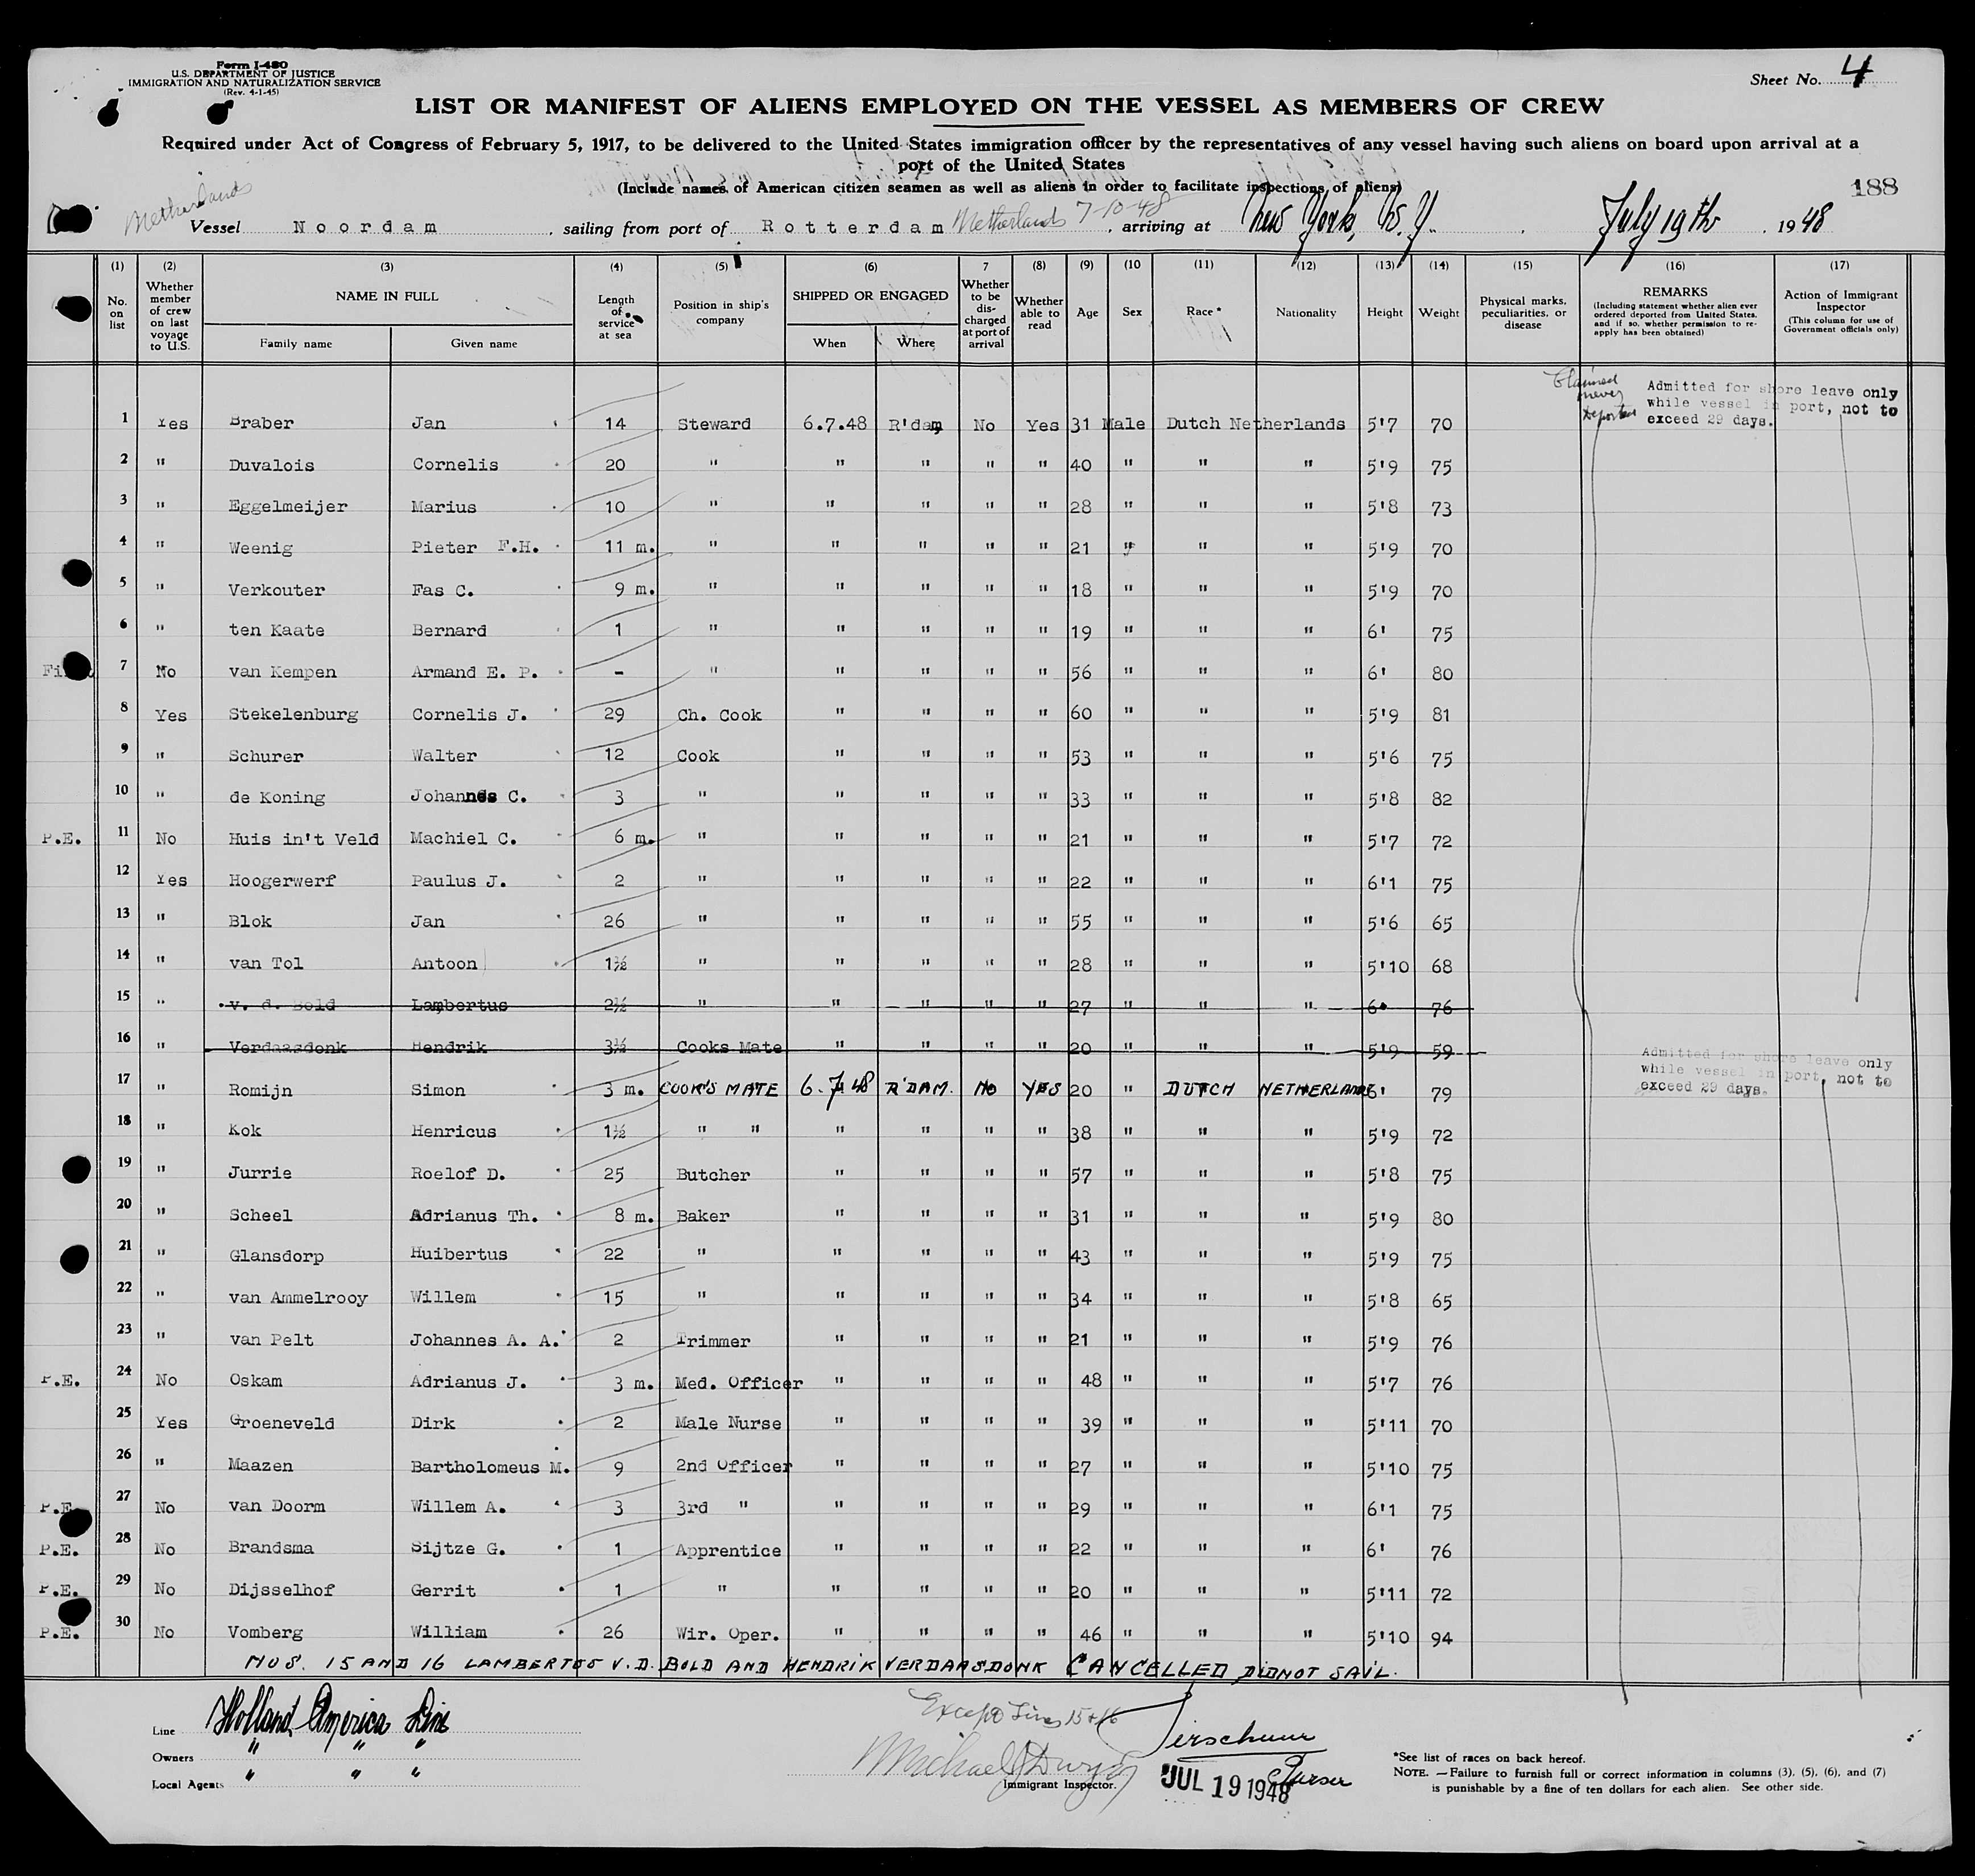 Form I-480
U.S. DEPARTMENT OF JUSTICE
IMMIGRATION AND NATURALIZATION SERVICE
(Rev. 4-1-45)
Sheet No. 4
LIST OR MANIFEST OF ALIENS EMPLOYED ON THE VESSEL AS MEMBERS OF CREW
Required under Act of Congress of February 5, 1917, to be delivered to the United States immigration officer by the representatives of any vessel having such aliens on board upon arrival at a
port of the United States
(Include names of American citizen seamen as well as aliens in order to facilitate inspections of aliens)
188
Netherlands
Vessel Noordam, sailing from port of Rotterdam Netherlands 7-10-48, arriving at New York, N.Y. July 19th, 1948
(1) (2) (3) (4) (5) (6) 7 (8) (9) (10 (11) (12) (13) (14) (15) (16) (17)
No. on list
Whether member of crew on last voyage to U.S.
NAME IN FULL
Family name
Given name
Length of service at sea
Position in ship's company
SHIPPED OR ENGAGED
When
Where
Whether to be discharged at port of arrival
Whether able to read
Age
Sex
Race*
Nationality
Height
Weight
Physical marks, peculiarities, or disease
REMARKS
(Including statement whether alien ever ordered deported from United States, and if so, whether permission to re-apply has been obtained)
Action of Immigrant Inspector
(This column for use of Government officials only)
Claimed never deported
Admitted for shore leave only
while vessel in port, not to
exceed 29 days.
1 Yes Braber Jan 14 Steward 6.7.48 R'dam No Yes 31 Male Dutch Netherlands 5'7 70
2 " Duvalois Cornelis 20 " " " " " 40 " " " 5'9 75
3 " Eggelmeijer Marius 10 " " " " " 28 " " " 5'8 73
4 " Weenig Pieter F.H. 11 m. " " " " " 21 " " " 5'9 70
5 " Verkouter Fas C. 9 m. " " " " " 18 " " " 5'9 70
6 " ten Kaate Bernard 1 " " " " " 19 " " " 6' 75
7 No van Kempen Armand E. P. - " " " " " 56 " " " 6' 80
8 Yes Stekelenburg Cornelis J. 29 Ch. Cook " " " " 60 " " " 5'9 81
9 " Schurer Walter 12 Cook " " " " 53 " " " 5'6 75
10 " de Koning Johannes C. 3 " " " " " 33 " " " 5'8 82
P.E. 11 No Huis in't Veld Machiel C. 6 m. " " " " " 21 " " " 5'7 72
12 Yes Hoogerwerf Paulus J. 2 " " " " " 22 " " " 6'1 75
13 " Blok Jan 26 " " " " " 55 " " " 5'6 65
14 " van Tol Antoon 1½ " " " " " 28 " " " 5'10 68
15 " v. d. Bold Lambertus 2½ " " " " " 27 " " " 6' 76
16 " Verdaasdonk Hendrik 3½ Cooks Mate " " " " 20 " " " 5'9 59
Admitted for shore leave only
while vessel in port, not to
exceed 29 days.
17 " Romijn Simon 3 m. COOK'S MATE 6.7.48 R'DAM. No YES 20 " DUTCH NETHERLANDS 6' 79
18 " Kok Henricus 1½ " " " " " " 38 " " " 5'9 72
19 " Jurrie Roelof D. 25 Butcher " " " " 57 " " " 5'8 75
20 " Scheel Adrianus Th. 8 m. Baker " " " " 31 " " " 5'9 80
21 " Glansdorp Huibertus 22 " " " " " 43 " " " 5'9 75
22 " van Ammelrooy Willem 15 " " " " " 34 " " " 5'8 65
23 " van Pelt Johannes A. A. 2 Trimmer " " " " 21 " " " 5'9 76
P.E. 24 No Oskam Adrianus J. 3 m. Med. Officer " " " " 48 " " " 5'7 76
25 Yes Groeneveld Dirk 2 Male Nurse " " " " 39 " " " 5'11 70
26 " Maazen Bartholomeus M. 9 2nd Officer " " " " 27 " " " 5'10 75
P.E. 27 No van Doorm Willem A. 3 3rd " " " " " 29 " " " 6'1 75
P.E. 28 No Brandsma Sijtze G. 1 Apprentice " " " " 22 " " " 6' 76
P.E. 29 No Dijsselhof Gerrit 1 " " " " " 20 " " " 5'11 72
P.E. 30 No Vomberg William 26 Wir. Oper. " " " " 46 " " " 5'10 94
NOS. 15 AND 16 LAMBERTOS V.D. BOLD AND HENDRIK VERDAASDONK CANCELLED DID NOT SAIL.
Except Lines 15 + 16
Line Holland America Line
Owners " " "
Local Agents " " "
Immigrant Inspector.
Purser
JUL 19 1948
*See list of races on back hereof.
NOTE. — Failure to furnish full or correct information in columns (3), (5), (6), and (7)
is punishable by a fine of ten dollars for each alien. See other side.